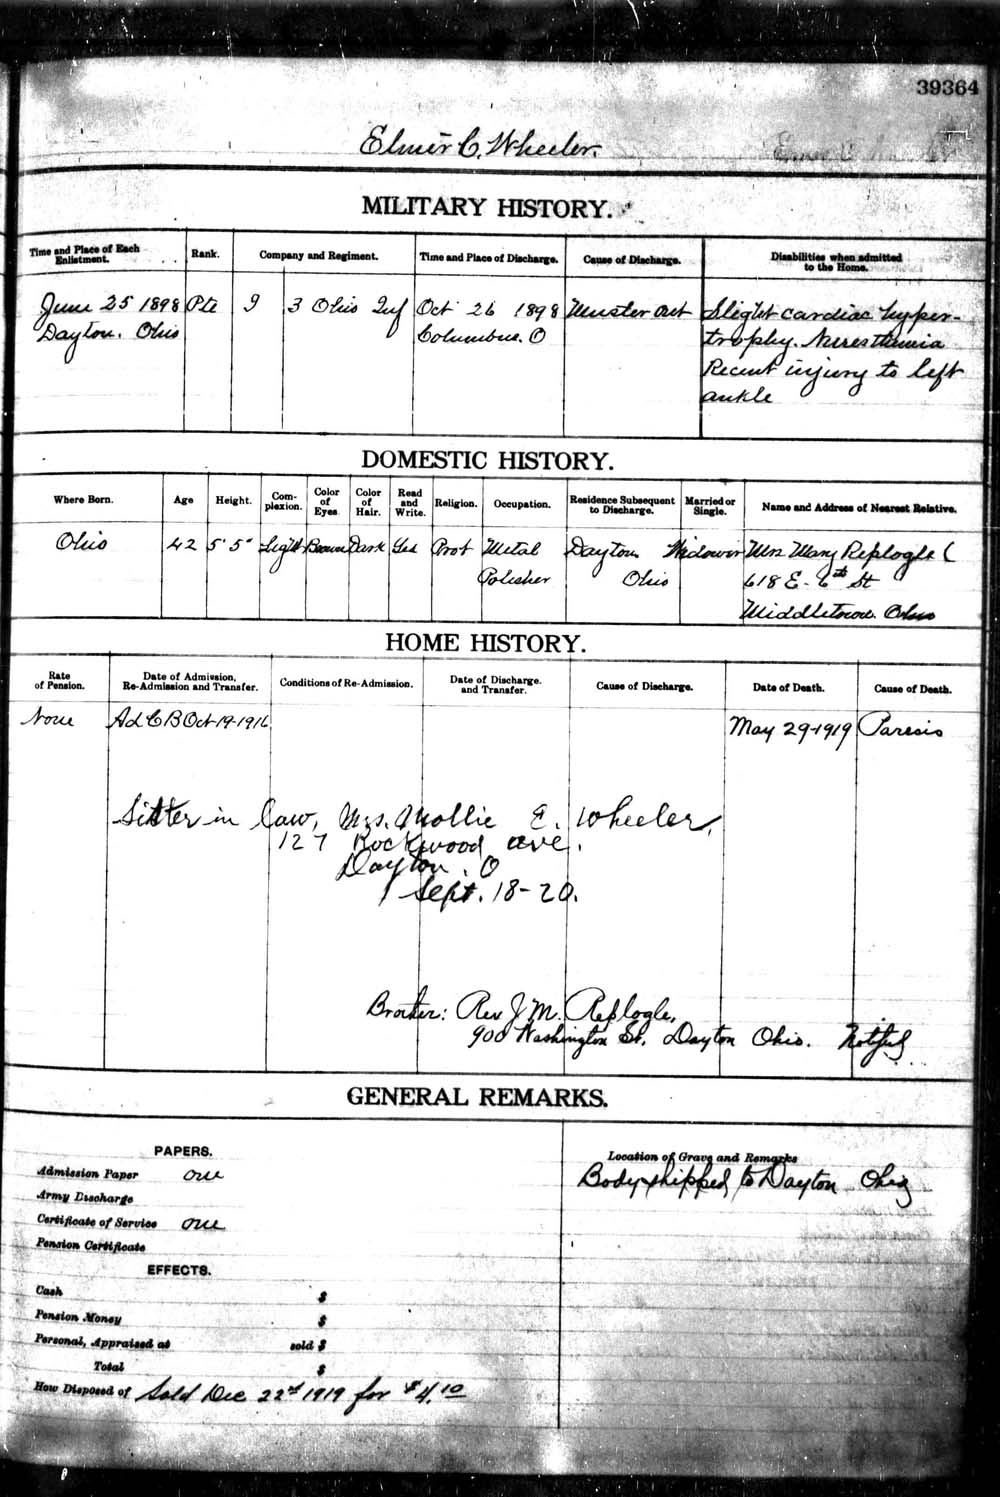 39364
Elmer C. Wheeler.
MILITARY HISTORY.
Time and Place of Each Enlistment. Rank. Company and Regiment. Time and Place of Discharge. Cause of Discharge. Disabilities when admitted to the Home.
June 25 1898 Pte 3 Ohio Inf Oct 26 1898 Muster out Slight cardiac hyper-
Dayton. Ohio Columbus. O trophy. Neresthenia
Recent injury to left
ankle
DOMESTIC HISTORY.
Where Born. Age Height. Com-plexion. Color of Eyes Color of Hair. Read and Write. Religion. Occupation. Residence Subsequent to Discharge. Married or Single. Name and Address of Nearest Relative.
Ohio 42 5' 5" Light Brown Dark Yes Prot Metal Dayton Widower Mrs Mary Replogle (
Polisher Ohio 618 E. 6th St
Middletown. Ohio
HOME HISTORY.
Rate of Pension. Date of Admission, Re-Admission and Transfer. Conditions of Re-Admission. Date of Discharge. and Transfer. Cause of Discharge. Date of Death. Cause of Death.
None Ad C B Oct-19-1916 May 29-1919 Paresis
Sister in law, Mrs. Mollie E. Wheeler,
127 Rockwood ave.
Dayton, O
Sept. 18-20.
Brother: Rev J. M. Replogle,
900 Washington St. Dayton Ohio.
GENERAL REMARKS.
PAPERS.
Location of Grave and Remarks
Admission Paper one
Body shipped to Dayton Ohio
Army Discharge
Certificate of Service one
Pension Certificate
EFFECTS.
Cash $
Pension Money $
Personal, Appraised at sold $
Total $
How Disposed of Sold Dec 22nd 1919 for $4.10